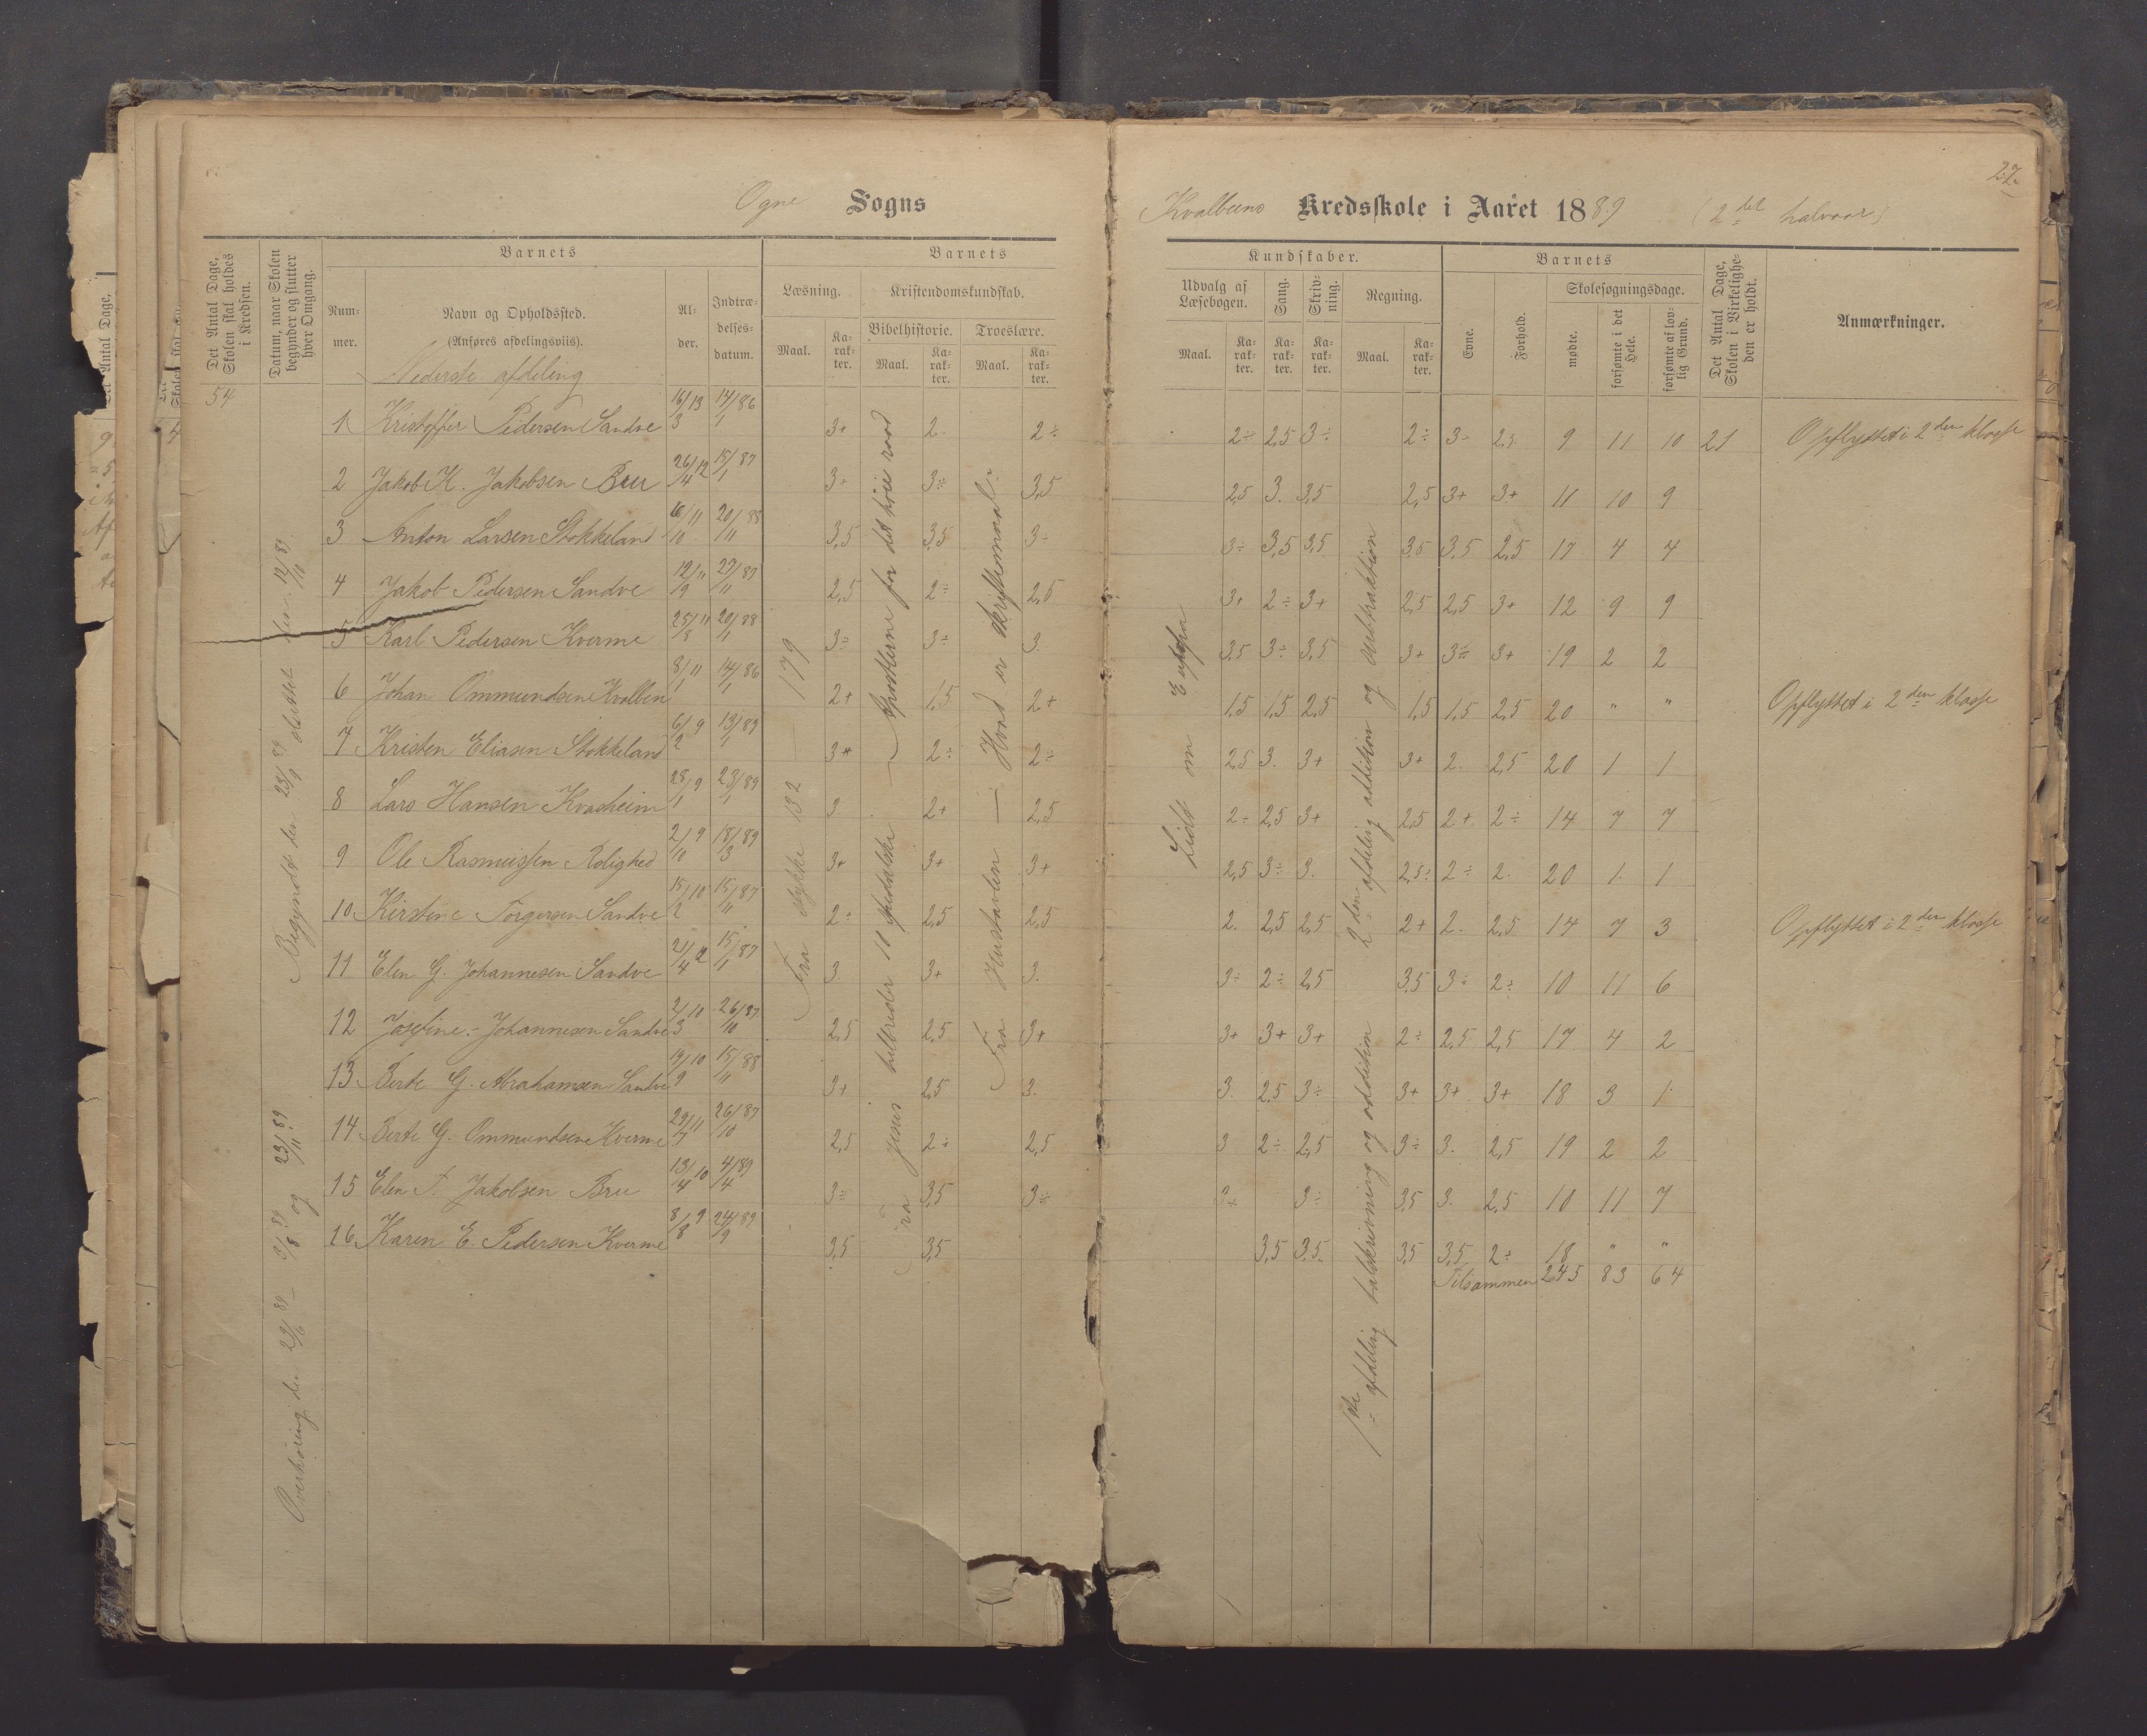 27.
Ogne Sogns
Kvalbens Kredsskole i Aaret 1889 (2det halvaar)
Det Antal Dage, Skolen skal holdes i Kredsen.
Datum, naar Skolen begynder og slutter hver Omgang.
Barnets
Num-mer.
Navn og Opholdssted.
(Anføres afdelingsviis).
Al-der.
Indtræ-delses-datum.
Barnets
Læsning.
Maal.
Ka-rak-ter.
Kristendomskundskab.
Bibelhistorie.
Maal.
Ka-rak-ter.
Troeslære.
Maal.
Ka-rak-ter.
Kundskaber.
Udvalg af Læsebogen.
Maal.
Ka-rak-ter.
Sang.
Ka-rak-ter.
Skriv-ning.
Ka-rak-ter.
Regning.
Maal.
Ka-rak-ter.
Barnets
Evne.
Forhold.
Skolesøgningsdage.
mødte.
forsømte i det Hele.
forsømte af lov-lig Grund.
Det Antal Dage, Skolen i Virkelighe-den er holdt.
Anmærkninger.
54
Nederste afdeling
1 Kristoffer Pedersen Sandve 16/3 13 14/1 86 3+ 2 2÷ 2÷ 2,5 3÷ 2÷ 3÷ 2,5 9 11 10 21 Opflyttet i 2den klasse
2 Jakob K. Jakobsen Bru 26/4 12 15/1 87 3÷ 3÷ 3,5 2,5 3. 3,5 2,5 3+ 3+ 11 10 9
3 Anton Larsen Stokkeland 16/10 11 20/11 88 3,5 3,5 3÷ 3÷ 3,5 3,5 3,5 3,5 2,5 17 4 4
4 Jakob Pedersen Sandve 12/9 11 27/11 87 2,5 2÷ 2,5 3+ 2÷ 3+ 2,5 2,5 3+ 12 9 9
5 Karl Pedersen Kverme 25/8 11 20/1 88 3÷ 3÷ 3. 3,5 3÷ 3,5 3+ 3÷ 3+ 19 2 2
6 Johan Ommundsen Kvalben 8/1 11 14/1 86 2+ 1,5 2+ 1,5 1,5 2,5 1,5 1,5 2,5 20 " " Opflyttet i 2den klasse
7 Kristen Eliasen Stokkeland 6/2 9 13/1 89 3+ 2÷ 2÷ 2,5 3. 3+ 3+ 2. 2,5 20 1 1
8 Lars Hansen Kvasheim 28/1 9 23/1 89 3 2+ 2,5 2÷ 2,5 3+ 2,5 2+ 2÷ 14 7 7
9 Ole Rasmussen Rolighed 2/10 9 18/3 89 3+ 3+ 3+ 2,5 3÷ 3. 2,5÷ 2÷ 2. 20 1 1
10 Kirstine Torgersen Sandve 15/2 10 15/11 87 2÷ 2,5 2,5 2. 2,5 2,5 2+ 2. 2,5 14 7 3 Opflyttet i 2den klasse
11 Elen G. Johannesen Sandve 21/4 12 15/1 87 3 3+ 3. 3÷ 2÷ 2,5 3,5 3÷ 2÷ 10 11 6
12 Josefine Johannesen Sandve 2/3 10 26/10 87 2,5 2,5 3+ 3+ 3+ 3+ 2÷ 2,5 2,5 17 4 2
13 Berte G. Abrahamsen Sandve 19/9 10 15/11 88 3+ 2,5 3. 3 2,5 3÷ 3+ 3+ 3+ 18 3 1
14 Berte G. Ommundsen Kverme 29/7 11 26/10 87 2,5 2÷ 2,5 3 2÷ 2,5 3÷ 3. 2,5 19 2 2
15 Elen T. Jakobsen Bru 13/4 10 4/4 89 3÷ 3,5 3÷ 3÷ 3÷ 3,5 3. 2,5 10 11 7
16 Karen E. Pedersen Kverme 8/8 9 24/9 89 3,5 3,5 3,5 3,5 3,5 3,5 2÷ 18 " "
Tilsammen 245 83 64
Begyndt den 28/1 89 sluttet den 12/11 89
Overhøring den 29/6 89 — 31/8 89 og 23/11 89
Fra stykke 132 — 179
Fra Jesus helbreder 10 spedalske — Apostlerne for det høie raad
Fra Hustavlen — Hvad er skriftemaal?
Lidt om Europa
1ste afdelig talskrivning og addition
2den afdelig addition og subtraktion